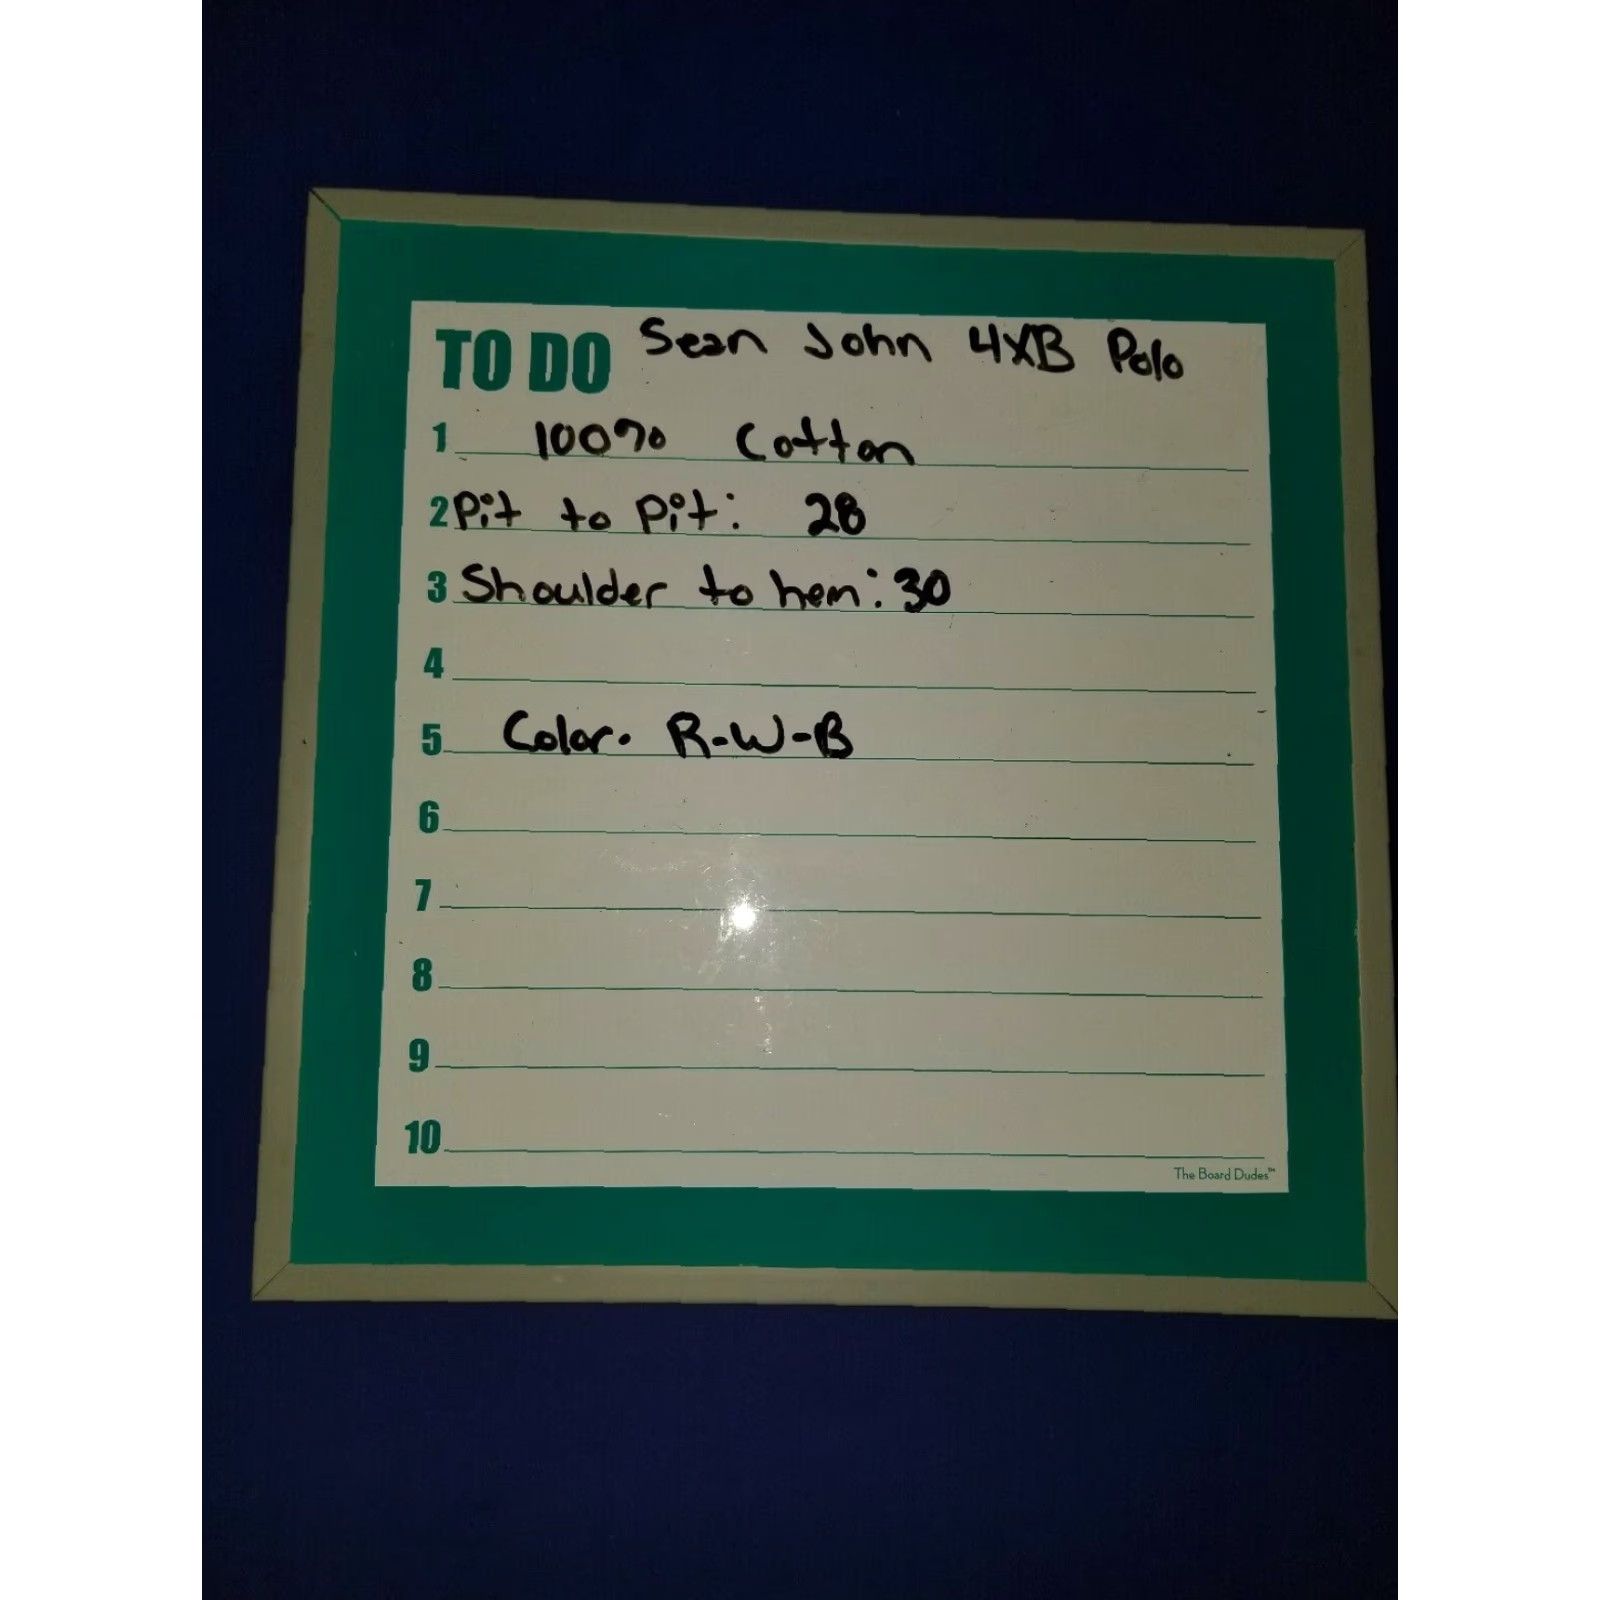 TO DO Sean John 4XB Polo
1 100% Cotton
2 Pit to Pit: 28
3 Shoulder to hem: 30
4
5 Color. R-W-B
6
7
8
9
10
The Board Dudes™